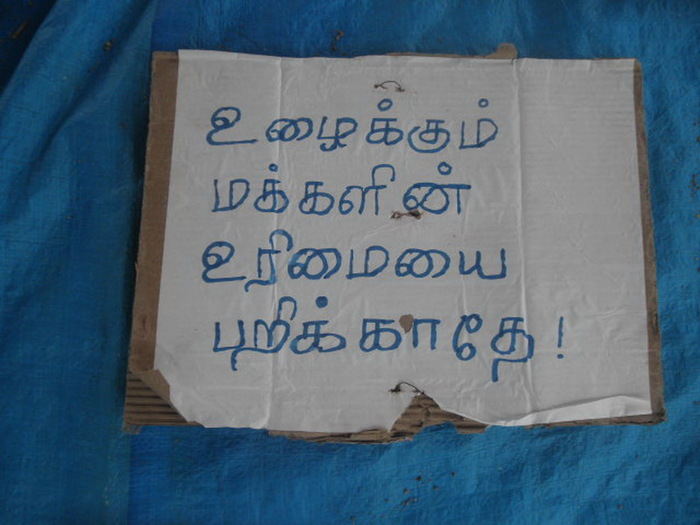 உழைக்கும்
மக்களின்
உரிமையை
பறிக்காதே!